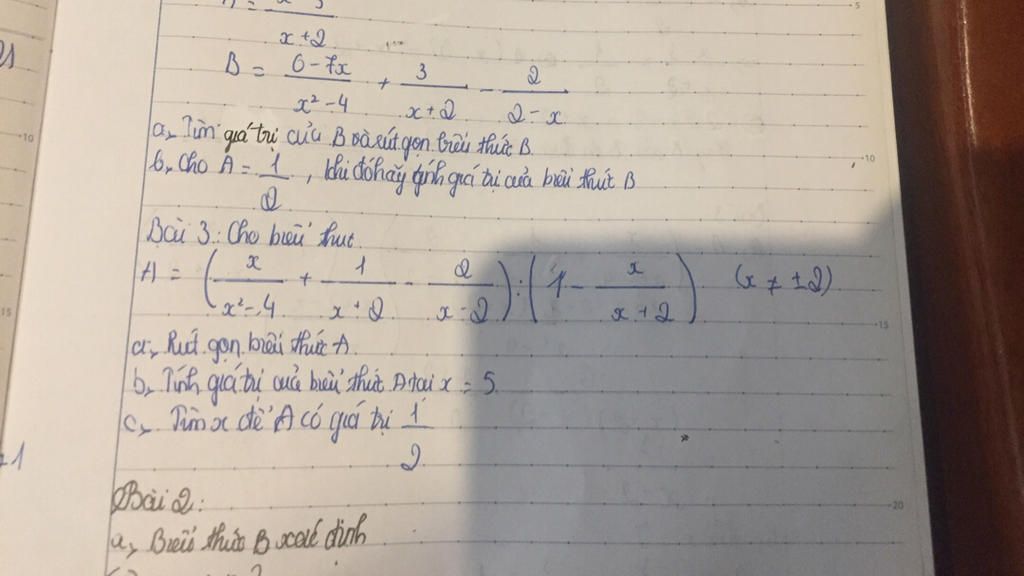 x + 2
B = (6 - 7x)/(x² - 4) + 3/(x + 2) - 2/(2 - x)
a, Tìm giá trị của B và rút gọn biểu thức B.
b, Cho A = 1/2, khi đó hãy tính giá trị của biểu thức B
Bài 3: Cho biểu thuc
A = (x/(x² - 4) + 1/(x + 2) - 2/(x - 2)) : (1 - x/(x + 2)) (x ≠ ±2)
a, Rút gọn biểu thức A.
b, Tính giá trị của biểu thức A tại x = 5
c, Tìm x để A có giá trị 1/2
Bài 2:
a, Biểu thức B xác định
5
10
15
20
10
15